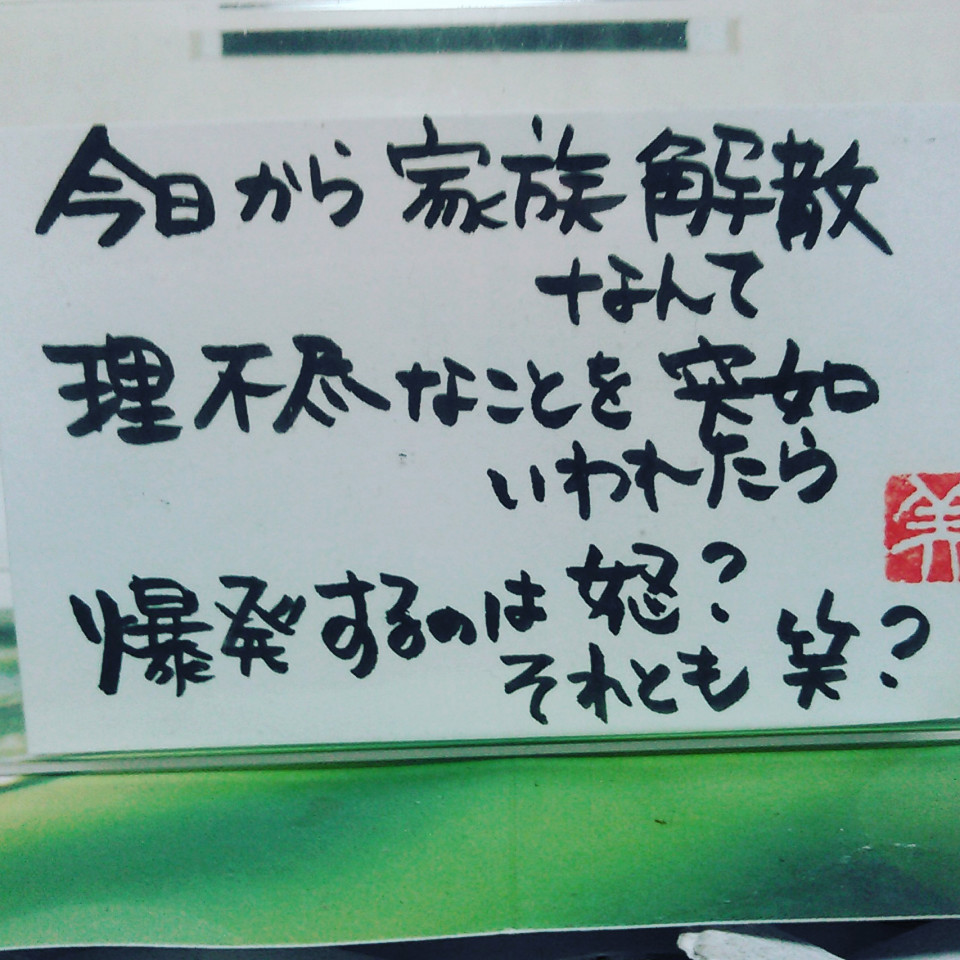 今日から家族解散
なんて
理不尽なことを突如
いわれたら
爆発するのは怒?
それとも笑?
美